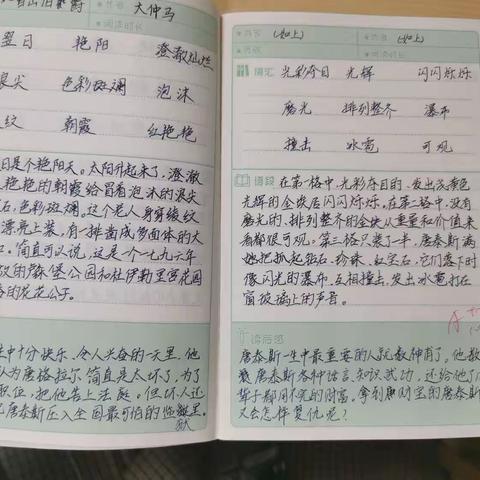 作者 大仲马
阅读时长
翌日 艳阳 澄澈灿烂
浪尖 色彩斑斓 泡沫
纹 朝霞 红艳艳
日是个艳阳天。太阳升起来了，澄澈
艳艳的朝霞给冒着泡沫的浪尖
石，色彩斑斓。这个老人身穿绫纹
漂亮上装，有一排凿成多面体的大
。简直可以说，这是一个一七九六年
的森堡公园和杜伊勒里宫花园
的花花公子。
中十分快乐，令人兴奋的一天里。他
认为唐格拉尔简直是太坏了，为了
职位，把他告上法庭。但坏人还
唐泰斯压入全国最可怕的监狱里。
书名 (如上) 作者 (如上)
词汇 光彩夺目 光辉 闪闪烁烁
磨光 排列整齐 瀑布
撞击 冰雹 可观
语段 在第一格中，光彩夺目的、发出浅黄色
光辉的金埃居闪闪烁烁。在第二格中，没有
磨光的、排列整齐的金块从重量和价值来
看都很可观。第三格只装了半，唐泰斯满
把抓起钻石、珍珠、红宝石，它们落下时
像闪光的瀑布，互相撞击，发出冰雹打在
窗玻璃上的声音。
读后感
唐泰斯一生中最重要的人就数神甫了。他教
唐泰斯各种语言、知识、武功，还给他了
辈子都用不完的财富。拿到财宝的唐泰斯
又会怎样复仇呢？